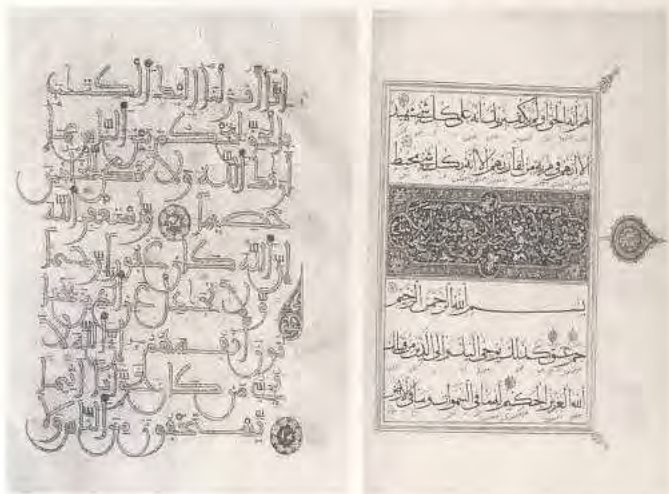 إنا أنزلنا إليك الكتب
بالحق لتحكم بين الناس بما
أريك الله ولا تكن للخائنين
خصيما واستغفر الله
إن الله كان غفورا رحيما
ولا تجدل عن الذين يختا
نون أنفسهم إن الله لا
يحب من كان خوانا أثيما
يستخفون من الناس ولا
لهم أنه الحق أولم يكف بربك أنه على كل شيء شهيد
ألا إنهم في مرية من لقاء ربهم ألا إنه بكل شيء محيط
بسم الله الرحمن الرحيم
حم عسق كذلك يوحي إليك وإلى الذين من قبلك
الله العزيز الحكيم له ما في السموات وما في الأرض